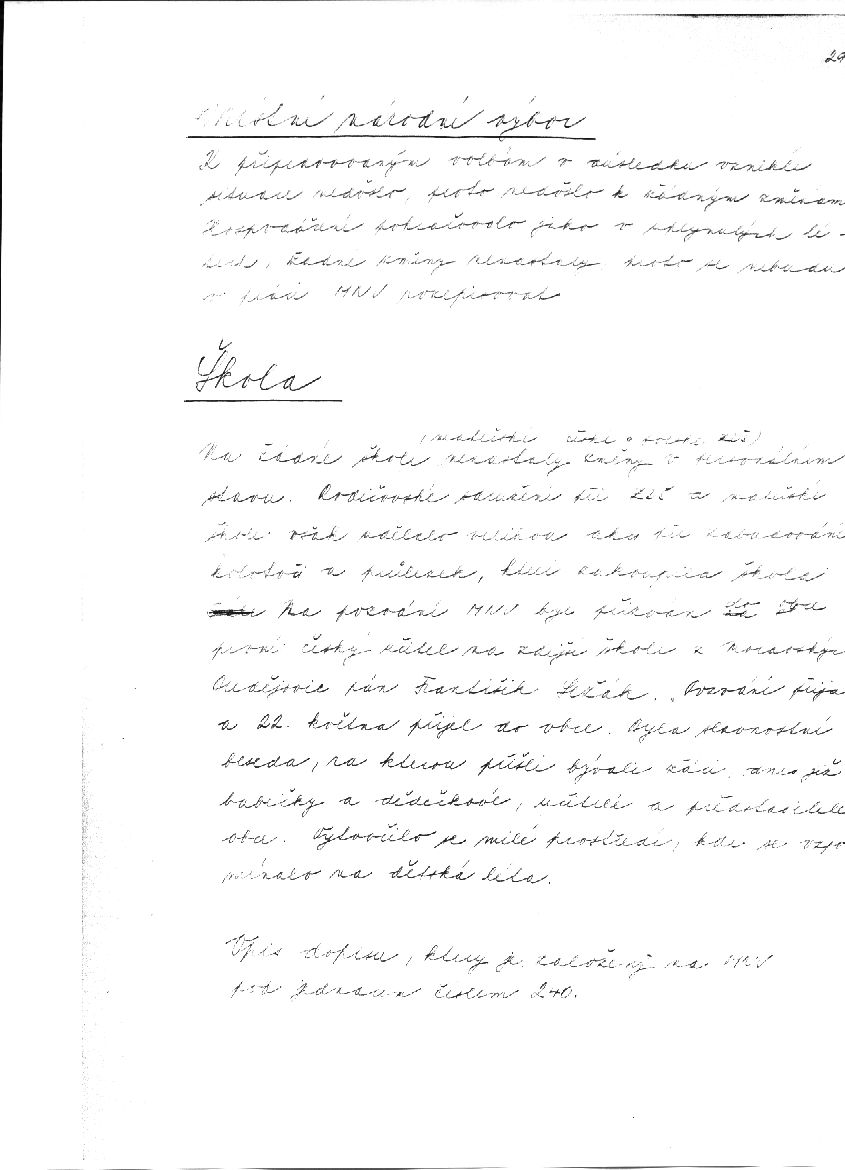 29
Místní národní výbor
K připravovaným volbám v důsledku vzniklé
situace nedošlo, proto nedošlo k žádným změnám
Hospodaření pokračovalo jako v uplynulých le-
tech, žádné změny nenastaly, proto se nebudu
o práci MNV rozepisovat
Škola
(mateřské české a polské ZDŠ)
Na žádné škole nenastaly změny v personálním
stavu. Rodičovské sdružení při ZDŠ a mateřské
škole však udělalo velikou akci při zabudování
kolotoč a průlezek, které zakoupila škola
Na pozvání MNV byl pozván do
první český učitel na zdejší škole z Moravských
pán František Ležák. Pozvání přija
a 22. května přijel do obce. Byla slavnostní
beseda, na kterou přišli bývalí žáci, dnes již
babičky a dědečkové, učitelé a představitelé
obce. Vytvořilo se milé prostředí, kde se vzpo
mínalo na dětská léta.
Opis dopisu, který je založený na MNV
pod jednacím číslem 240.